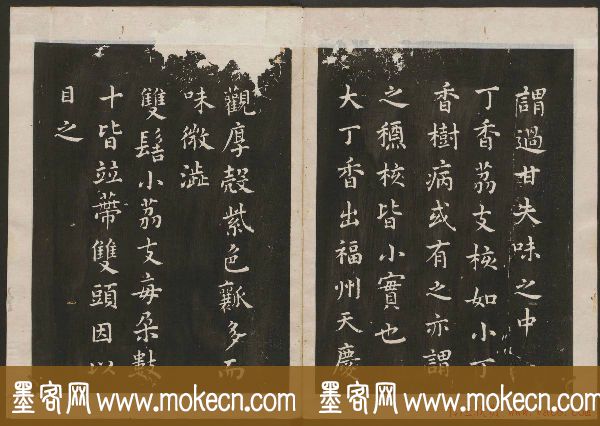 謂過甘失味之中
丁香荔支核如小丁
香樹病或有之亦謂
之穤核皆小實也
大丁香出福州天慶
觀厚殼紫色瓤多而
味微澁
雙髻小荔支每朵數
十皆並蔕雙頭因以
目之
墨客网 www.mokecn.com 墨客网 www.mokecn.com